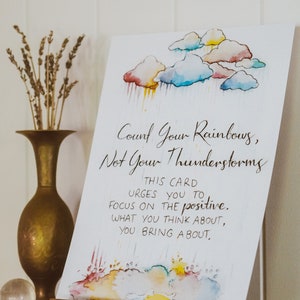 Count Your Rainbows,
Not Your Thunderstorms
THIS CARD
URGES YOU TO
FOCUS ON THE positive.
WHAT YOU THINK ABOUT,
YOU BRING ABOUT.